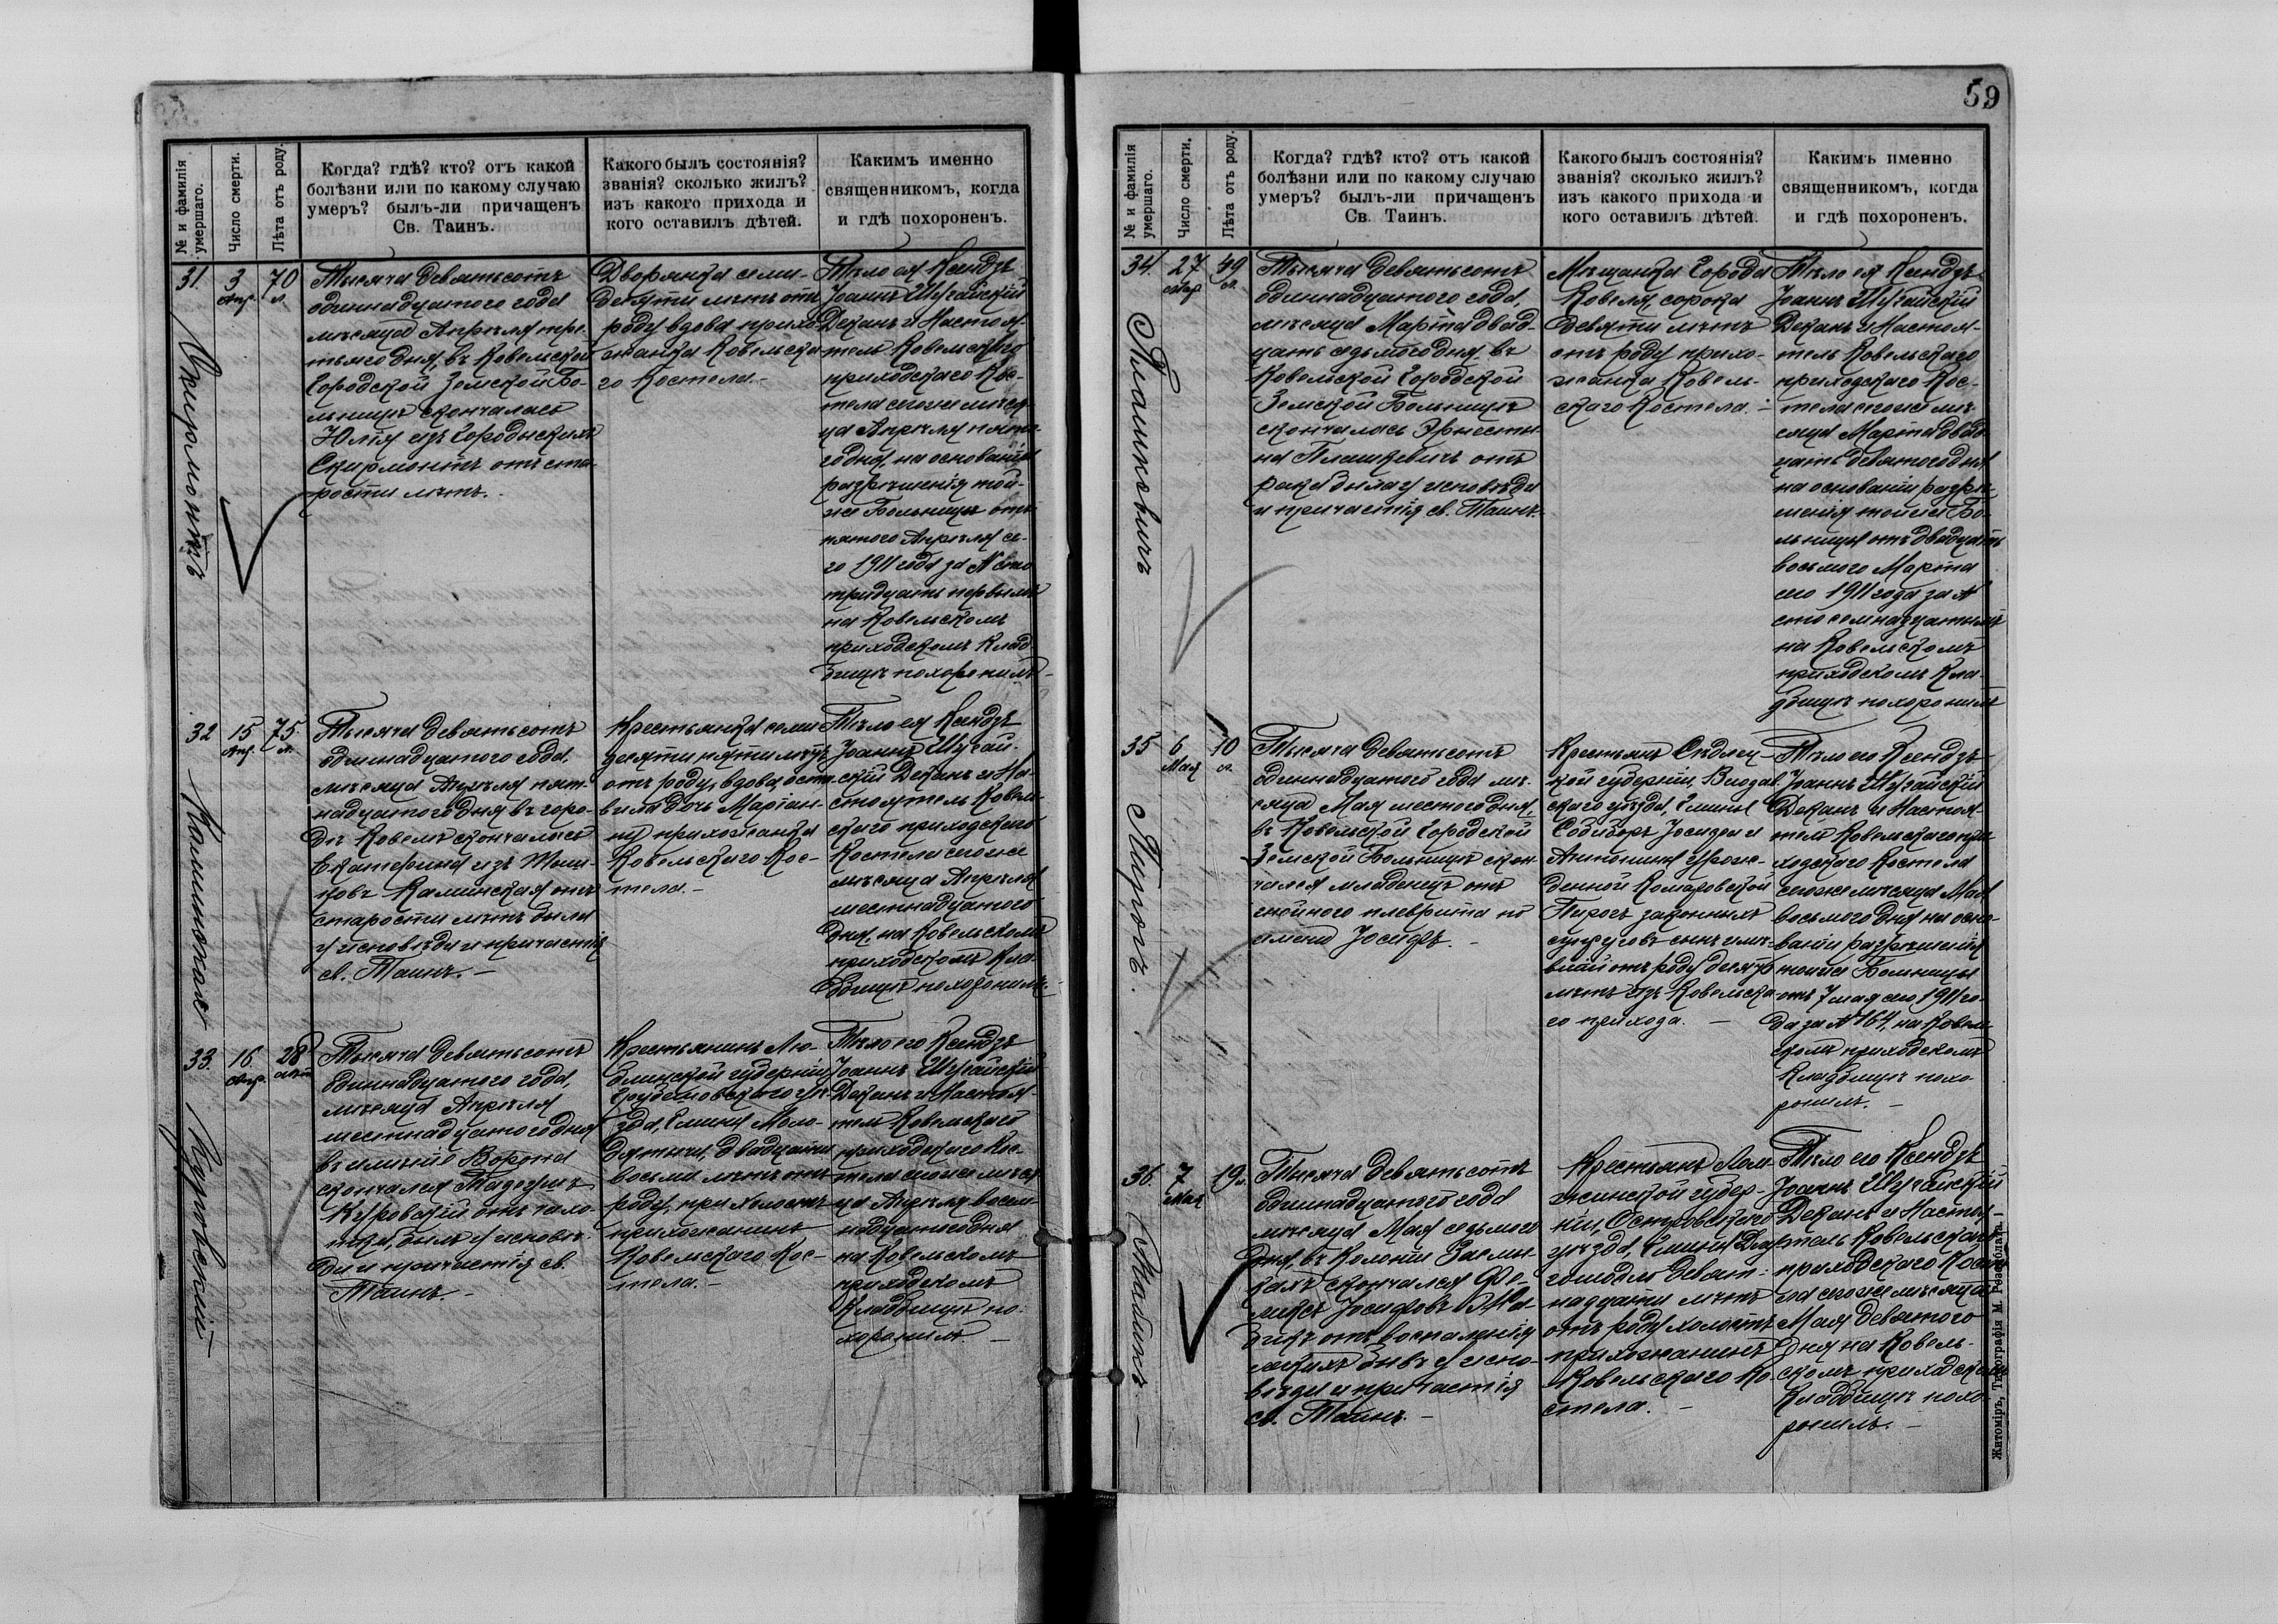 59
№ и фамилія умершаго.
Число смерти.
Лѣта отъ роду.
Когда? гдѣ? кто? отъ какой
болѣзни или по какому случаю
умеръ? былъ-ли причащенъ
Св. Таинъ.
Какого былъ состоянія?
званія? сколько жилъ?
изъ какого прихода и
кого оставилъ дѣтей.
Какимъ именно
священникомъ, когда
и гдѣ похороненъ.
31.
Скирмонтъ
3
Апр.
70
л.
Тысяча девятьсотъ
одиннадцатого года
мѣсяца Апрѣля тре-
тьяго дня, въ Ковельской
Городской Земской Бо-
льницѣ скончалась
Юлія изъ
Скирмонтъ отъ ста-
рости лѣтъ.
Дворянка семи-
десяти лѣтъ отъ
роду вдова прихо-
жанка Ковельска-
го Костела.-
Тѣло ея Ксендзъ
Іоаннъ Шугайскій
Деканъ и Настоя-
тель Ковельского
приходского Кос-
тела сегоже мѣся-
ца Апрѣля пята-
го дня, на основаніи
разрѣшенія той-
же Больницы отъ
пятого Апрѣля се-
го 1911 года за № сто
тридцать первымъ
на Ковельскомъ
приходскомъ Клад-
бищѣ похоронилъ-
32
Калинская
15
Апр.
75
л.
Тысяча девятьсотъ
одиннадцатого года,
мѣсяца Апрѣля пят-
надцатого дня въ горо-
дѣ Ковелѣ скончалась
Екатерина изъ
Калинская отъ
старости лѣтъ была
у исповѣди и причастія
св. Таинъ.-
Крестьянка семи
десяти пяти лѣтъ
отъ роду, вдова, оста-
вила дочь Маріан-
ну прихожанка
Ковельского Кос-
тела.-
Тѣло ея Ксендзъ
Іоаннъ Шугай-
скій Деканъ и На-
стоятель Ковель-
ского приходского
Костела сегоже
мѣсяца Апрѣля
шестнадцатого
дня, на Ковельскомъ
приходскомъ Кла-
дбищѣ похоронилъ.
33.
Куровскій
16
Апр.
28
лѣт
Тысяча девятьсотъ
одиннадцатого года,
мѣсяца Апрѣля
шестнадцатого дня
въ имѣніе Ворона
скончался Тадеушъ
Куровскій отъ
былъ у исповѣ-
ди и причастія св.
Таинъ.-
Крестьянинъ Лю-
блинской губерніи
Грубешовского уѣ-
зда, Гмины Моло-
двадцати
восьми лѣтъ отъ
роду, при холостъ
прихожанинъ
Ковельского Кос-
тела.-
Тѣло его Ксендзъ
Іоаннъ Шугайскій
Деканъ и Настоя-
тель Ковельского
приходского Кос-
тела сегоже мѣся-
ца Апрѣля восем-
надцатого дня
на Ковельскомъ
приходскомъ
Кладбищѣ по-
хоронилъ-
№ и фамилія умершаго.
Число смерти.
Лѣта отъ роду.
Когда? гдѣ? кто? отъ какой
болѣзни или по какому случаю
умеръ? былъ-ли причащенъ
Св. Таинъ.
Какого былъ состоянія?
званія? сколько жилъ?
изъ какого прихода и
кого оставилъ дѣтей.
Какимъ именно
священникомъ, когда
и гдѣ похороненъ.
34.
Плашкевичъ
27
Мар
49
л.
Тысяча девятьсотъ
одиннадцатого года,
мѣсяца Марта двад-
цать седьмого дня въ
Ковельской Городской
Земской Больницѣ
скончалась Эрнести-
на Плашкевичъ отъ
рака была у исповѣди
и причастія св. Таинъ.
Мѣщанка Города
Ковеля, сорока
девяти лѣтъ
отъ роду прихо-
жанка Ковель-
скаго Костела.-
Тѣло ея Ксендзъ
Іоаннъ Шугайскій
Деканъ и Настоя-
тель Ковельскаго
приходскаго Кос-
тела сегоже мѣ-
сяца Марта двад-
цать девятого дня
на основаніи разрѣ-
шенія тойже Бо-
льницы отъ двадцать
восьмого Марта
сего 1911 года за №
сто семнадцатымъ
на Ковельскомъ
приходскомъ Кла-
дбищѣ похоронилъ
35
Пирогъ.
6
Мая
10
л.
Тысяча девятьсотъ
одиннадцатого года мѣ-
сяца Мая шестого дня,
въ Ковельской Городской
Земской Больницѣ скон-
чался младенецъ отъ
гнойного плеврита по
имени Іосифъ.-
Крестьянъ Сѣдлец-
кой губерніи, Влодав-
ского уѣзда, Гмины
Собиборъ Іосифа и
Антонины урож-
денной Комаровской
Пирогъ законныхъ
супруговъ сынъ имѣ-
вшій отъ роду десять
лѣтъ изъ Ковельска-
го прихода.-
Тѣло его Ксендзъ
Іоаннъ Шугайскій
Деканъ и Настоя-
тель Ковельского при-
ходского Костела
сегоже мѣсяца Мая
восьмого дня на осно-
ваніи разрѣшенія
тойже Больницы
отъ 7 мая сего 1911 го-
да за № 164, на Ковель-
скомъ приходскомъ
Кладбищѣ похо-
ронилъ.-
36.
7
Мая
19 л.
Тысяча девятьсотъ
одиннадцатого года
мѣсяца Мая седьмого
дня, въ Колоніи
скончался Фе-
ликсъ Іосифовъ
отъ воспаленія
легкихъ бывъ у испо-
вѣди и причастія
св. Таинъ.-
Крестьянъ Лом-
жинской губер-
ніи, Островского
уѣзда, Гмины
девят-
надцати лѣтъ
отъ роду холостъ
прихожанинъ
Ковельского Ко-
стела.-
Тѣло его Ксендзъ
Іоаннъ Шугайскій
Деканъ и Настоя-
тель Ковельского
приходского Косте-
ла сегоже мѣсяца
Мая девятого
дня на Ковель-
скомъ приходскомъ
Кладбищѣ похо-
ронилъ.-
Житоміръ, Типографія М.